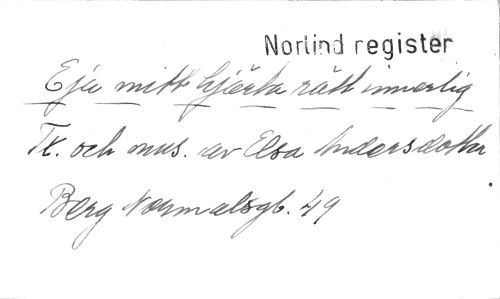 Norlind register
Eja mitt hjärta rätt innerlig
Tx. och mus. av Elsa Andersdotter
Berg Normalsgb. 49